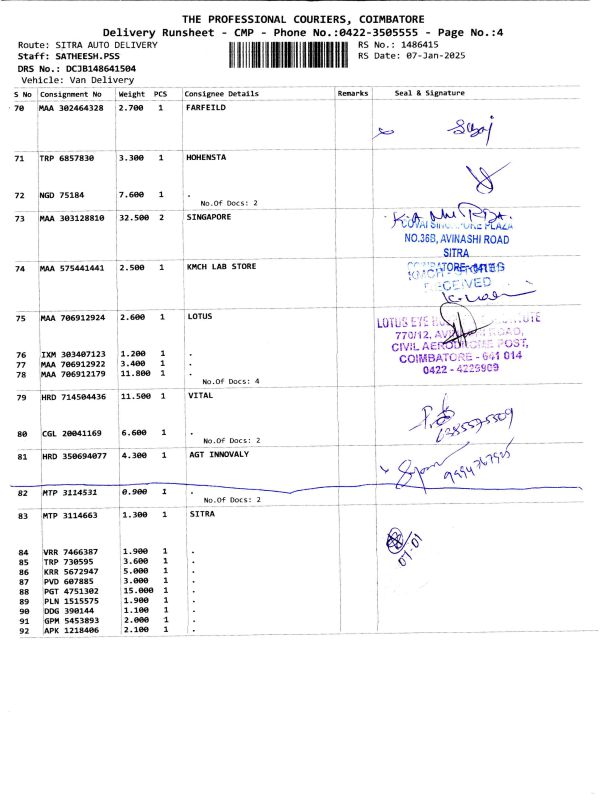 THE PROFESSIONAL COURIERS, COIMBATORE
Delivery Runsheet - CMP - Phone No.:0422-3505555 - Page No.:4
Route: SITRA AUTO DELIVERY
RS No.: 1486415
Staff: SATHEESH.PSS
RS Date: 07-Jan-2025
DRS No.: DCJB148641504
Vehicle: Van Delivery
S No Consignment No Weight PCS Consignee Details Remarks Seal & Signature
70 MAA 302464328 2.700 1 FARFEILD
71 TRP 6857830 3.300 1 HOHENSTA
72 NGD 75184 7.600 1 .
No.Of Docs: 2
73 MAA 303128810 32.500 2 SINGAPORE
NO.36B, AVINASHI ROAD
SITRA
74 MAA 575441441 2.500 1 KMCH LAB STORE
75 MAA 706912924 2.600 1 LOTUS
LOTUS EYE
770/12,
CIVIL AERODROME POST,
COIMBATORE - 641 014
0422 - 4229909
76 IXM 303407123 1.200 1 .
77 MAA 706912922 3.400 1 .
78 MAA 706912179 11.800 1 .
No.Of Docs: 4
79 HRD 714504436 11.500 1 VITAL
80 CGL 20041169 6.600 1 .
No.Of Docs: 2
81 HRD 350694077 4.300 1 AGT INNOVALY
82 MTP 3114531 0.900 1 .
No.Of Docs: 2
83 MTP 3114663 1.300 1 SITRA
07-01
84 VRR 7466387 1.900 1 .
85 TRP 730595 3.600 1 .
86 KRR 5672947 5.000 1 .
87 PVD 607885 3.000 1 .
88 PGT 4751302 15.000 1 .
89 PLN 1515575 1.900 1 .
90 DDG 390144 1.100 1 .
91 GPM 5453893 2.000 1 .
92 APK 1218406 2.100 1 .